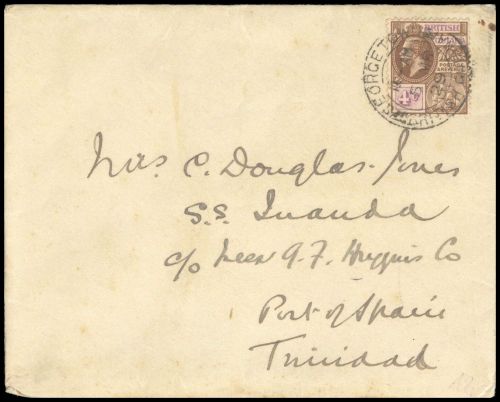 GEORGETOWN
BRITISH
POSTAGE
& REVENUE
Mrs C. Douglas-Jones
S.S. Inanda
c/o Messrs G. F. Huggins Co
Port of Spain
Trinidad